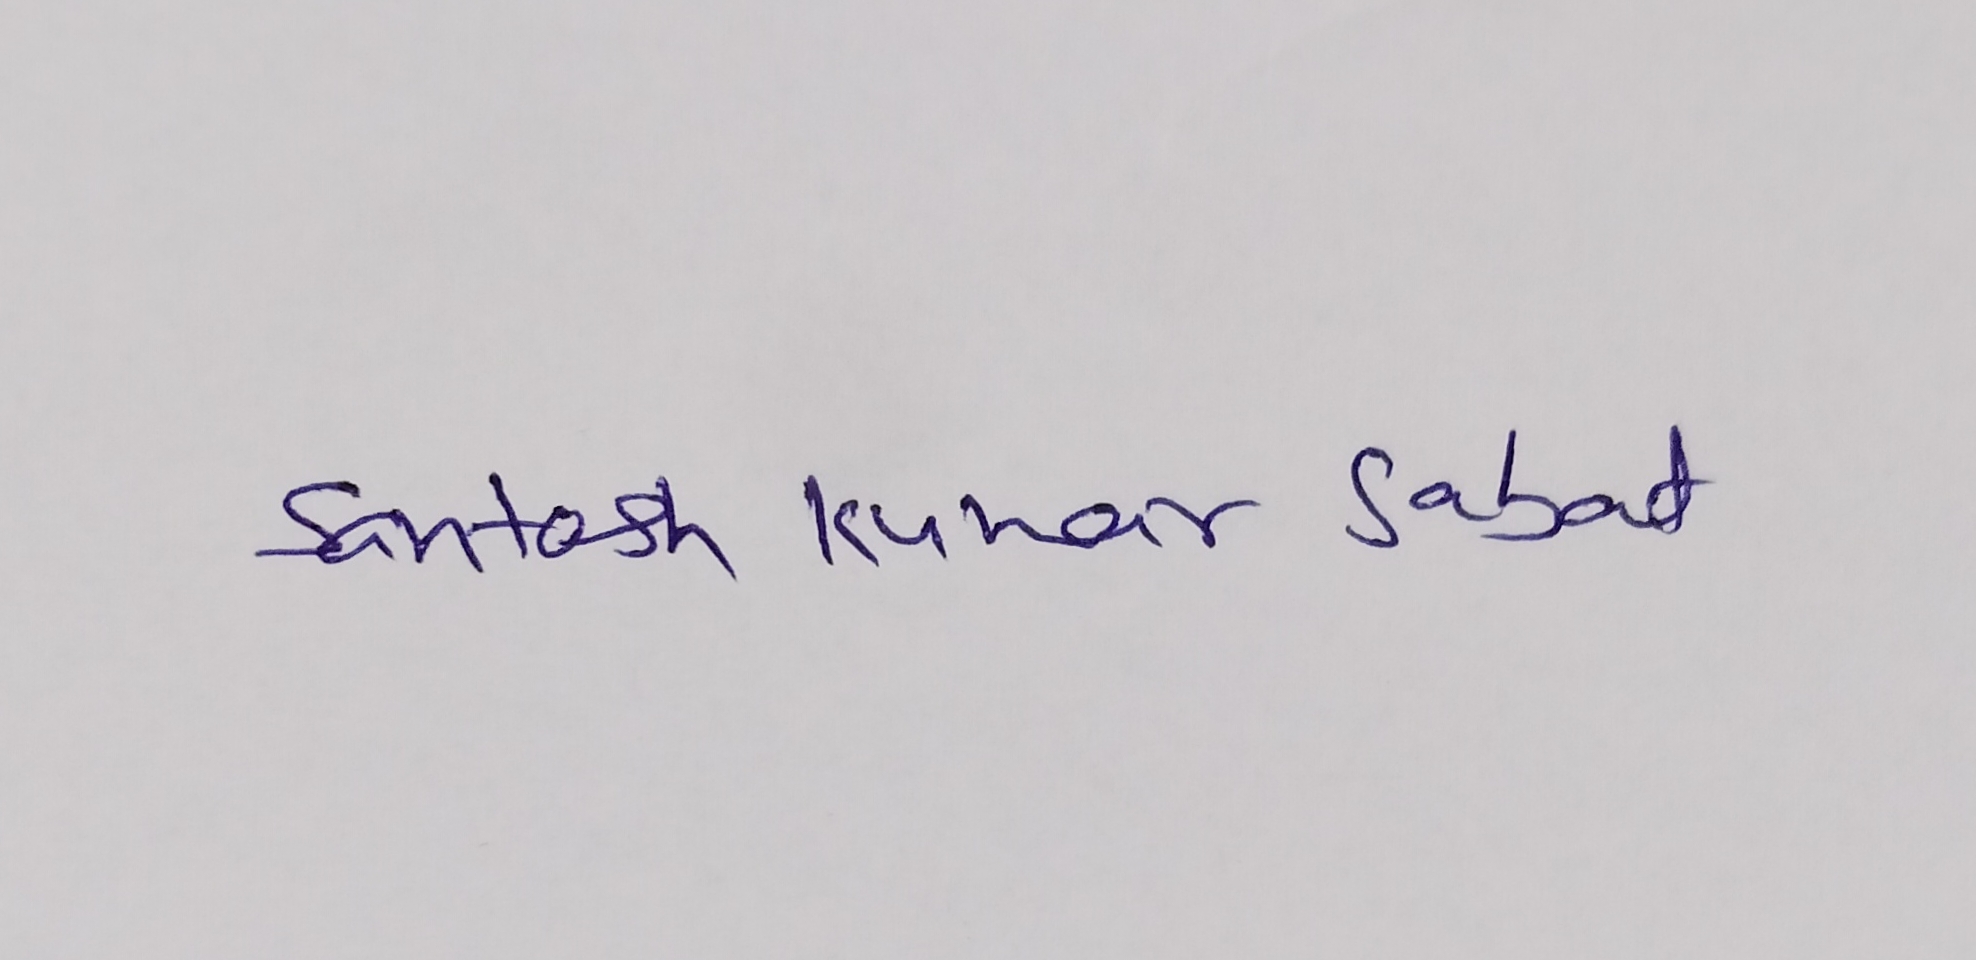 Santosh Kumar Sabat